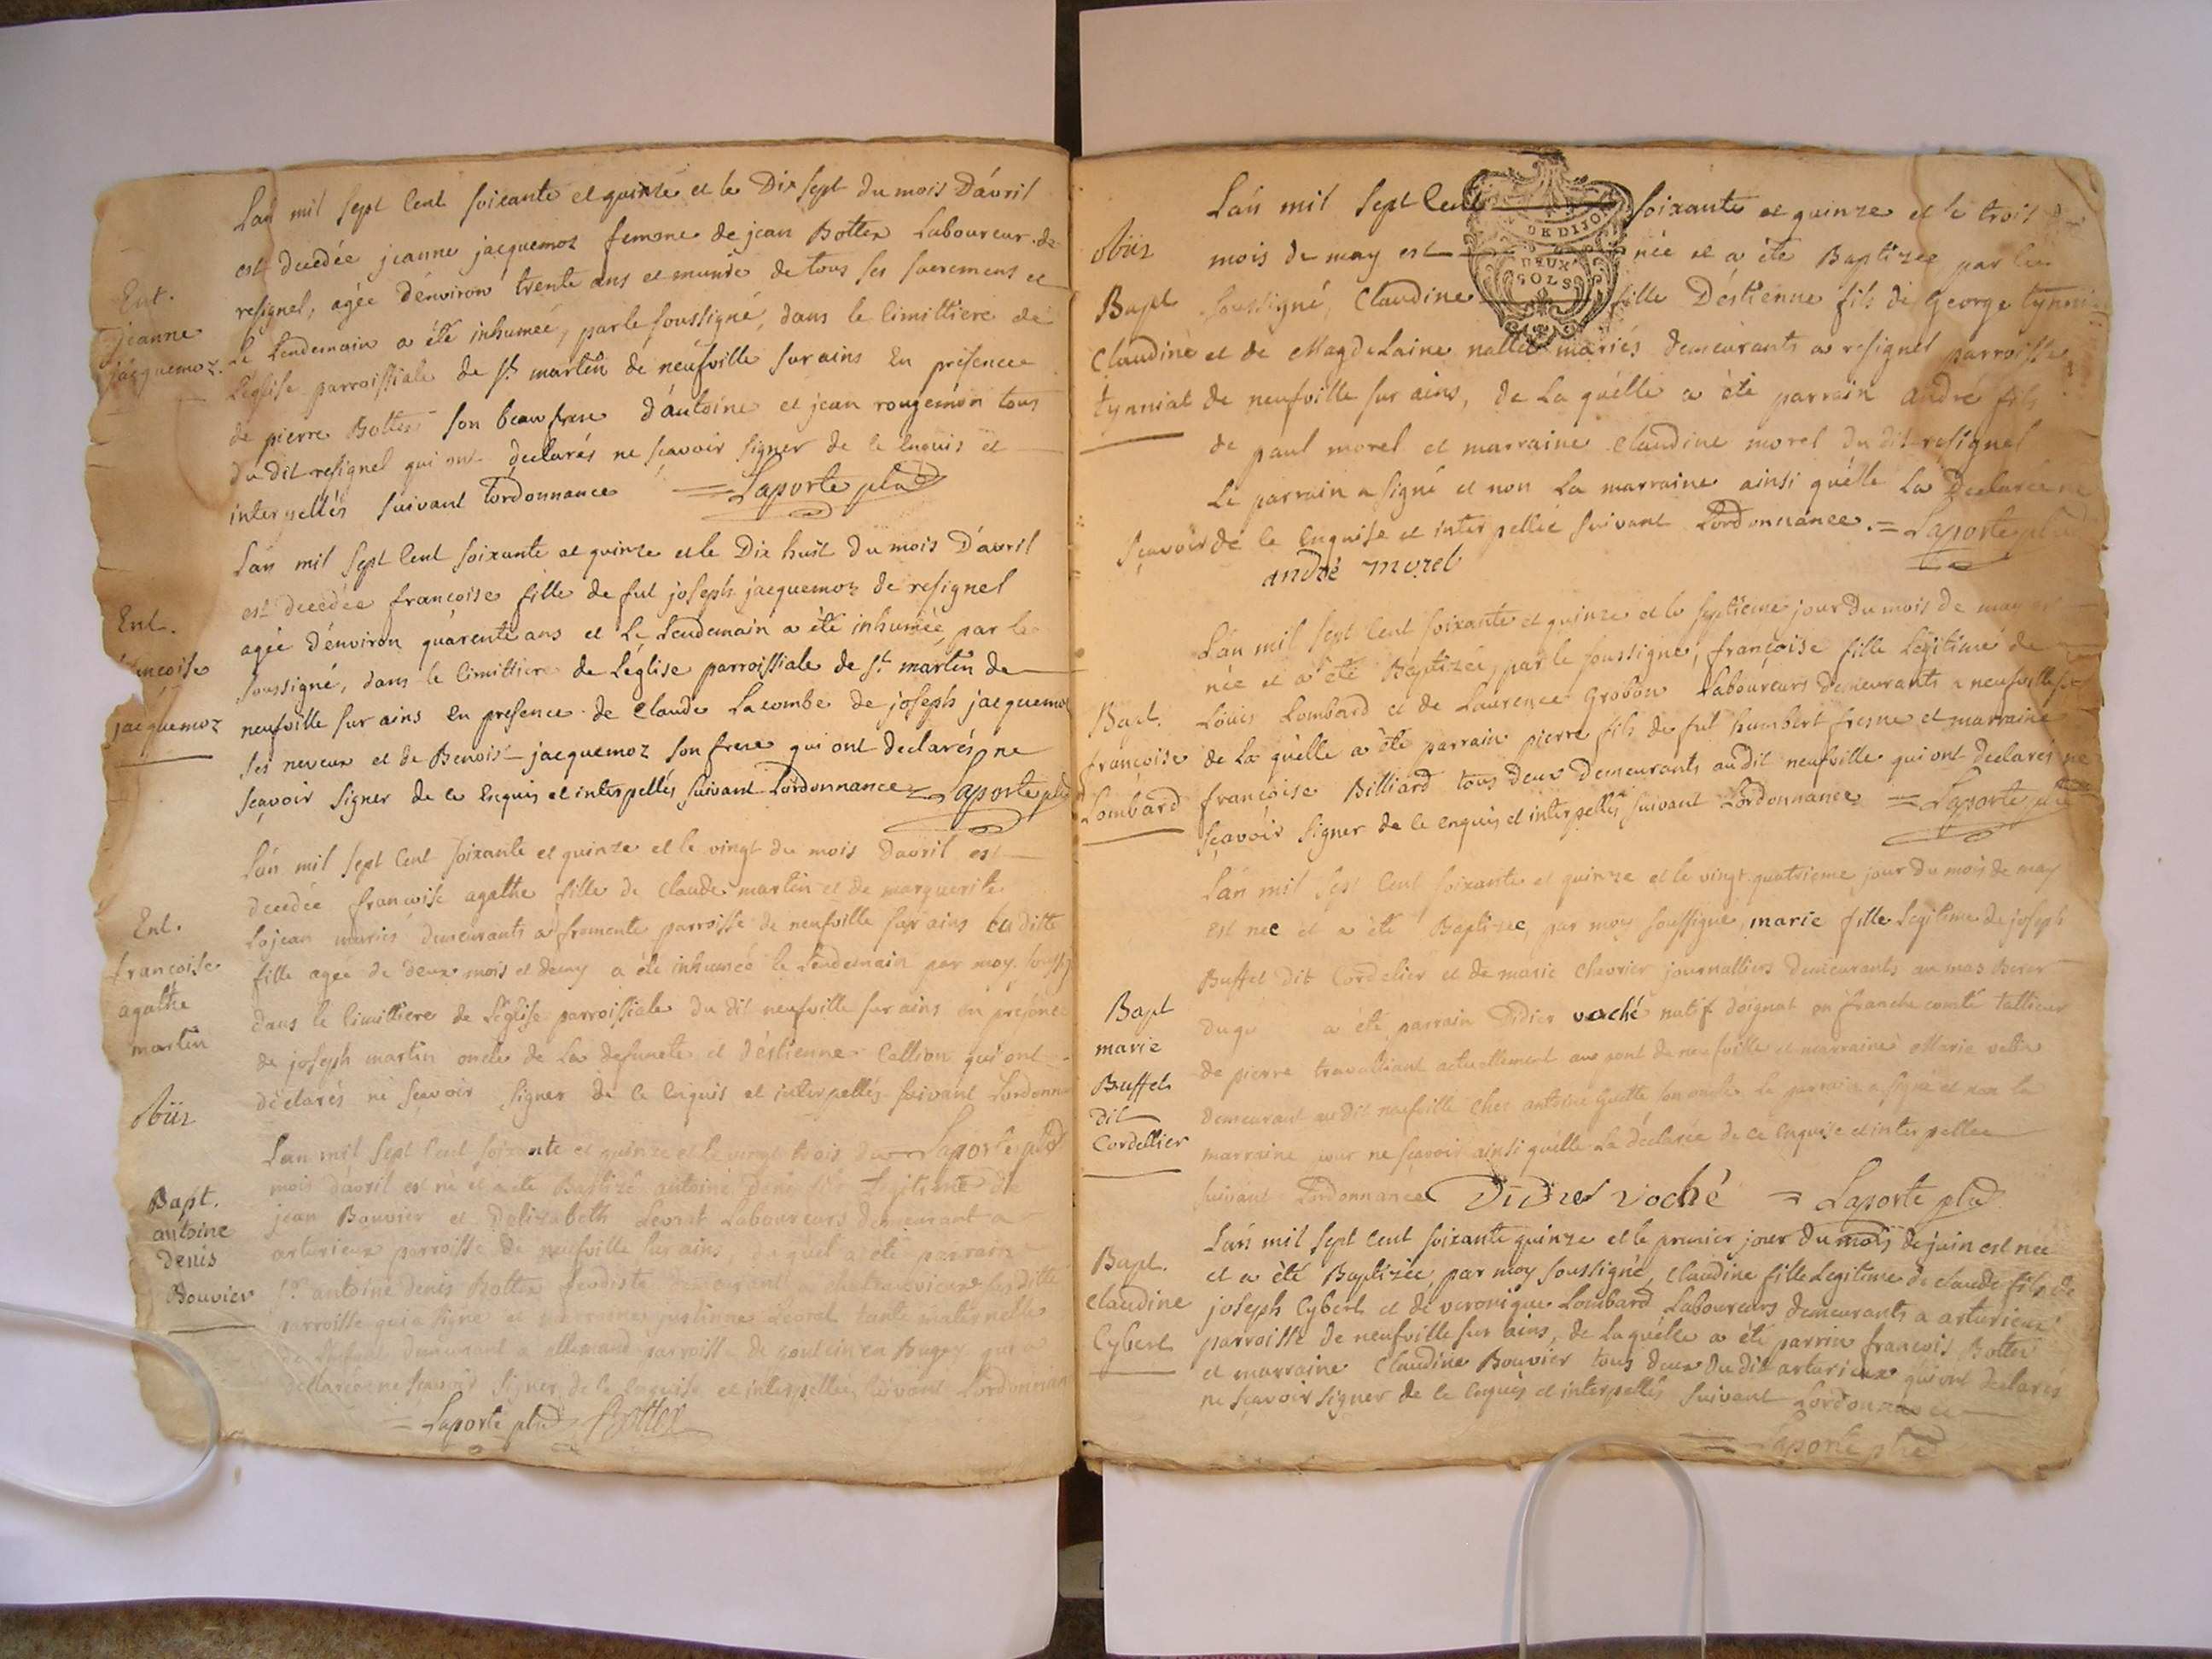 L'an mil sept Cent soixante et quinze et le Dix sept du mois D'avril
est decedée jeanne jacquemoz femme de jean Bottex Laboureur de
Ent.
jeanne
jacquemoz.
resignel, agée d'environ trente ans et munie de tous ses sacremens et
Le Lendemain a été inhumée, par le soussigné, dans le Cimittiere de
L'eglise parroissiale de St. martin de neufville sur ains En présence
de pierre Bottex son beau frere d'antoine et jean rougemon tous
du dit resignel qui ont declarés ne sçavoir signer de ce Enquis et
interpellés suivant Lordonnance = Laporte ptre
L'an mil sept Cent soixante et quinze et le Dix huit du mois D'avril
est decedée francoise fille de fut joseph jacquemoz de resignel
Ent.
francoise
jacquemoz
agée d'environ quarente ans et Le Lendemain a été inhumée par le
soussigné, dans le Cimittiere de L'église parroissiale de St. martin de
neufville sur ains En presence de Claude Lacombe de joseph jacquemoz
ses neveux et de Benoist jacquemoz son frere qui ont declarés ne
sçavoir signer de ce Enquis et interpellés suivant Lordonnance = Laporte ptre
L'an mil sept Cent soixante et quinze et le vingt du mois d'avril est
decedée francoise agathe fille de Claude martin et de marguerite
Ent.
francoise
agathe
martin
Lojean mariés demeurants a fromente parroisse de neufville sur ains la ditte
fille agée de deux mois et demy a été inhumée le Lendemain par moy soussig
dans le Cimittiere de L'église parroissiale du dit neufville sur ains en présence
de joseph martin oncle de la defuncte et d'éstienne Callion qui ont
déclarés ne sçavoir signer de ce Enquis et interpellés suivant Lordonn
Laporte ptre
L'an mil sept Cent soixante et quinze et le vingt trois du
mois d'avril est né et a été Baptizé antoine Denis fils Legitime de
Bapt.
antoine
Denis
Bouvier
jean Bouvier et Delizabeth Levrat Laboureurs demeurant a
arturieux parroisse de neufville sur ains duquel a été parrain
Sr. antoine denis Bottex feodiste
parroisse qui a signé et marraine justinne Levrat tante maternelle
demeurant a allemand parroisse de en Bugey qui a
declarée ne sçavoir signer de ce Enquise et interpellée suivant Lordonnan
= Laporte ptre Bottex
L'an mil sept Cent soixante et quinze et le trois du
DE DIJON
DEUX
SOLS
mois de may est née et a été Baptizée par le
Bapt
Claudine
tynniat
soussigné, Claudine fille D'éstienne fils de George tynniat
et de Magdelaine nallet mariés demeurants a resignel parroisse
de neufville sur ains, de La quélle a été parrain andré fils
de paul morel et marraine Claudine morel du dit resignel
Le parrain a signé et non La marraine ainsi qu'élle La Declarée ne
sçavoir de ce Enquise et interpellée suivant Lordonnance. = Laporte ptre
andré morel
L'an mil sept Cent soixante et quinze et le septieme jour du mois de may est
née et a été Baptizée, par le soussigné, françoise fille Légitime de
Bapt.
françoise
Lombard
Loüis Lombard et de Laurence Grobon Laboureurs demeurants a neufville sur
de La quélle a été parrain pierre fils de fut humbert fresne et marraine
françoise Billiard tous Deux Demeurants au dit neufville qui ont declarés ne
sçavoir signer de ce enquis et interpellés suivant Lordonnance = Laporte ptre
L'an mil sept Cent soixante et quinze et le vingt quatrieme jour du mois de may
est née et a été Baptizée, par moy soussigné, marie fille Legitime de joseph
Bapt
marie
Buffet
dit
Cordellier
Buffet dit Cordelier et de marie Chevrier journalliers demeurants au mas
a été parrain Didier voché natif doignat en franche comté tallieur
de pierre travalliant actuellement au pont de neufville et marraine Marie
demeurant au dit neufville Chez antoine son oncle Le parrain a signé et non la
marraine pour ne sçavoir ainsi qu'élle La déclarée de ce Enquise et interpellée
suivant Lordonnance Didier voché = Laporte ptre
L'an mil sept Cent soixante quinze et le premier jour du mois de juin est née
et a été Baptizée, par moy soussigné, Claudine fille Legitime de Claude fils de
Bapt.
Claudine
Cybert
joseph Cybert et de veronique Lombard Laboureurs demeurants a arturieux
parroisse de neufville sur ains, de laquélle a été parrin françois Bottex
et marraine Claudine Bouvier tous deux du dit arturieux qui ont declarés
ne sçavoir signer de ce enquis et interpellés suivant Lordonnance
= Laporte ptre